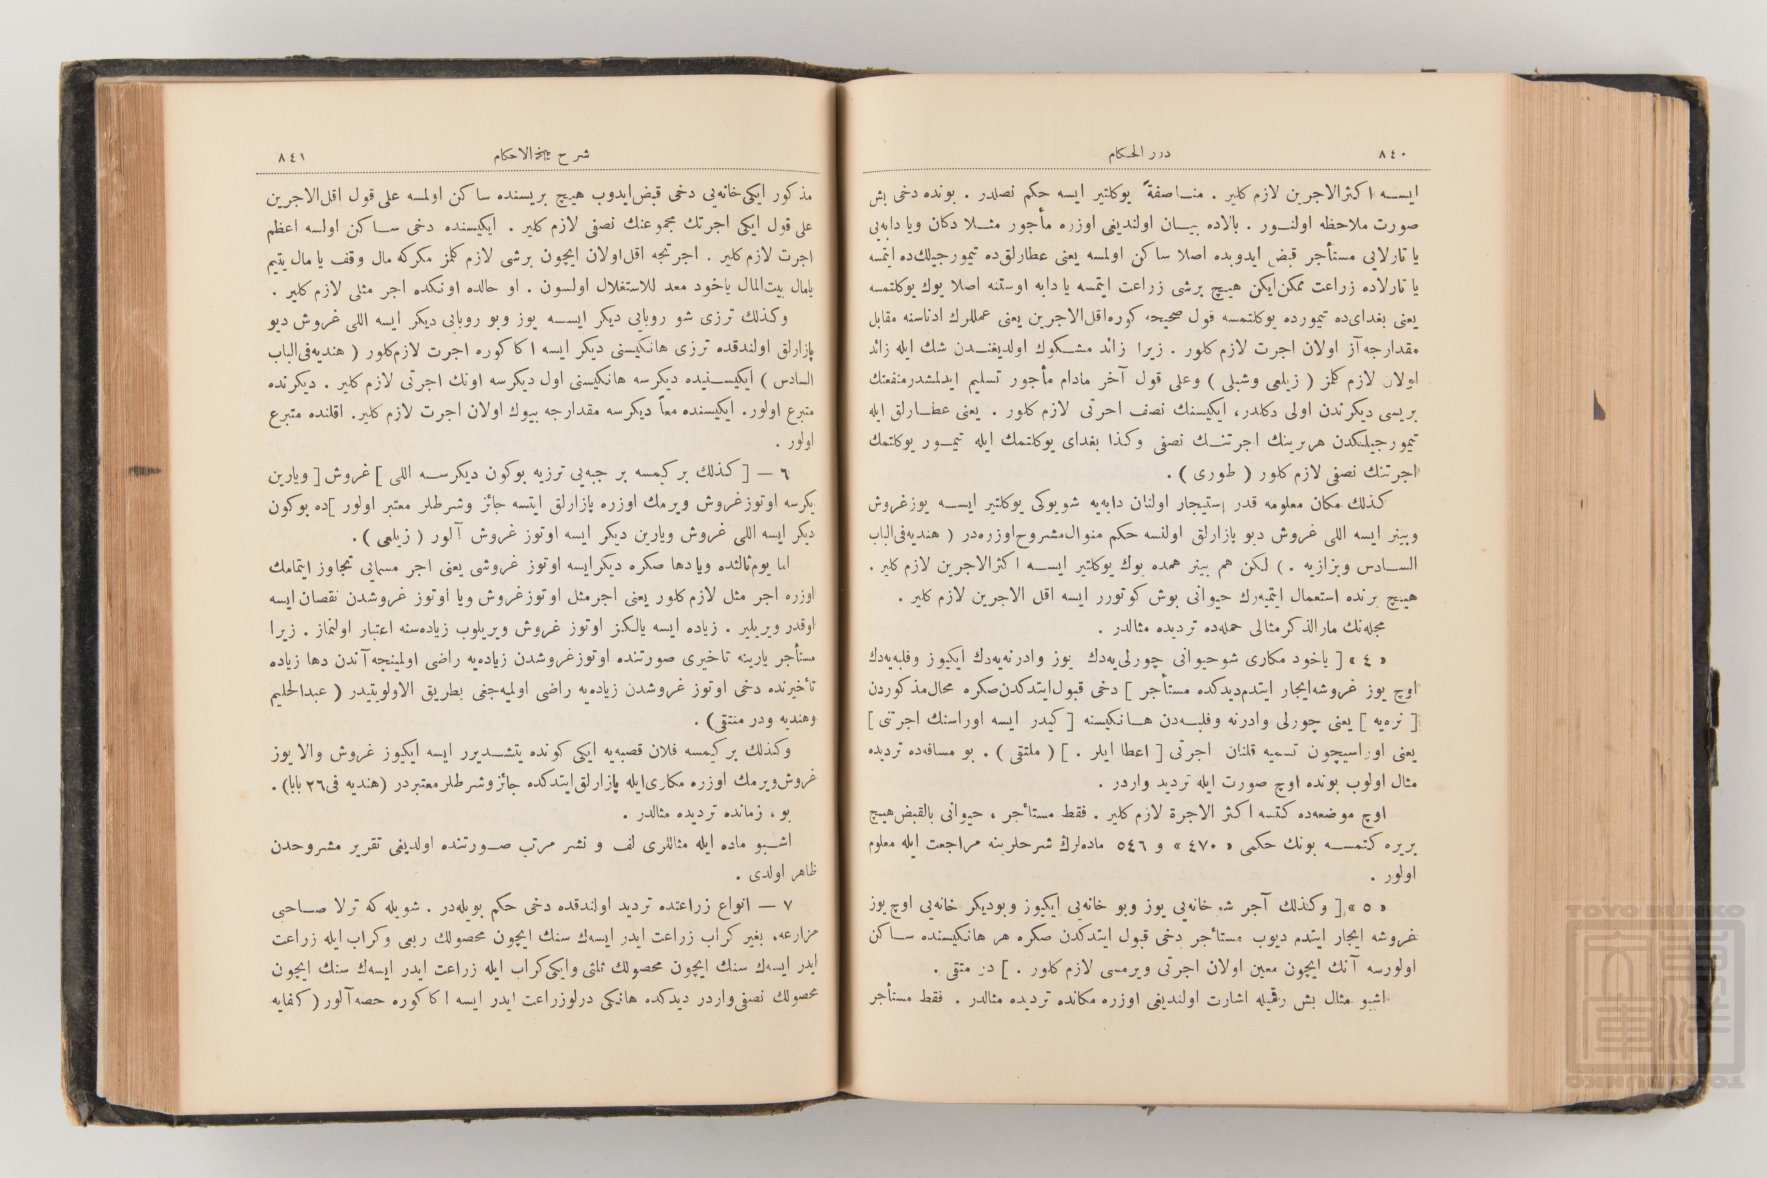 ٨٤٠
درر الحكام
ايسه اكثر الاجرين لازم كلير . مناصفةً يوكلتير ايسه حكم نصلدر . بونده دخى بش
صورت ملاحظه اولنور . بالاده بيان اولنديغى اوزره مأجور مثلا دكان ويا دابه‌يى
يا تارلايى مستأجر قبض ايدوبده اصلا ساكن اولمسه يعنى عطارلق‌ده تيمورجيلك‌ده ايتمسه
يا تارلاده زراعت ممكن‌ايكن هيچ برشى زراعت ايتمسه يا دابه اوستنه اصلا يوك يوكلتمسه
يعنى بغداى‌ده تيمورده يوكلتمسه قول صحيحه كوره‌اقل‌الاجرين يعنى عمللرك ادناسنه مقابل
مقدارجه‌آز اولان اجرت لازم كلور . زيرا زائد مشكوك اولديغندن شك ايله زائد
اولان لازم كلمز ( زيلعى وشبلى ) وعلى قول آخر مادام مأجور تسليم ايدلمشدرمنفعتك
بريسى ديكرندن اولى دكلدر، ايكيسنك نصف اجرتى لازم كلور . يعنى عطارلق ايله
تيمورجيلكدن هربرينك اجرتنك نصفى وكذا بغداى يوكلتمك ايله تيمور يوكلتمك
اجرتنك نصفى لازم كلور ( طورى ) .
كذلك مكان معلومه قدر استيجار اولنان دابه‌يه شويوكى يوكلتير ايسه يوزغروش
وبينر ايسه اللى غروش ديو پازارلق اولنسه حكم منوال‌مشروح‌اوزره‌در ( هنديه‌فى‌الباب
السادس وبزازيه . ) لكن هم بينر همده يوك يوكلتير ايسه اكثرالاجرين لازم كلير .
هيچ برنده استعمال ايتميه‌رك حيوانى بوش كوتورر ايسه اقل الاجرين لازم كلير .
مجله‌نك مارالذكرمثالى حمله‌ده ترديده مثالدر .
« ٤ » [ ياخود مكارى شوحيوانى چورلى‌يه‌دك يوز وادرنه‌يه‌دك ايكيوز وفلبه‌يه‌دك
اوچ يوز غروشه‌ايجار ايتدم‌ديدكده مستأجر ] دخى قبول‌ايتدكدن‌صكره محال‌مذكوردن
[ نره‌يه ] يعنى چورلى وادرنه وفلبه‌دن هانكيسنه [ كيدر ايسه اوراسنك اجرتنى ]
يعنى اوراسيچون تسميه قلنان اجرتى [ اعطا ايلر . ] ( ملتقى ) . بو مسافه‌ده ترديده
مثال اولوب بونده اوچ صورت ايله ترديد واردر .
اوچ موضعه‌ده كتسه اكثر الاجرة لازم كلير . فقط مستأجر ، حيوانى بالقبض‌هيچ
بريره كتمسه بونك حكمى « ٤٧٠ » و ٥٤٦ ماده‌لرك شرحلرينه مراجعت ايله معلوم
اولور .
« ٥ » [ وكذلك آجر شو خانه‌يى يوز وبو خانه‌يى ايكيوز وبوديكر خانه‌يى اوچ يوز
غروشه ايجار ايتدم ديوب مستأجر دخى قبول ايتدكدن صكره هر هانكيسنده ساكن
اولورسه آنك ايچون معين اولان اجرتى ويرمسى لازم كلور . ] در منتقى .
اشبو مثال بش رقميله اشارت اولنديغى اوزره مكانده ترديده مثالدر . فقط مستأجر
شرح مجلة الاحكام
٨٤١
مذكور ايكى‌خانه‌يى دخى قبض‌ايدوب هيچ بريسنده ساكن اولمسه على قول اقل‌الاجرين
على قول ايكى اجرتك مجموعنك نصفى لازم كلير . ايكيسنده دخى ساكن اولسه اعظم
اجرت لازم كلير . اجرتجه اقل‌اولان ايچون برشى لازم كلمز مكركه مال وقف يا مال يتيم
يامال بيت‌المال ياخود معد للاستغلال اولسون . او حالده اونكده اجر مثلى لازم كلير .
وكذلك ترزى شو روبايى ديكر ايسه يوز وبو روبايى ديكر ايسه اللى غروش ديو
پازارلق اولندقده ترزى هانكيسنى ديكر ايسه اكا كوره اجرت لازم‌كلور ( هنديه‌فى‌الباب
السادس ) ايكيسنيده ديكرسه هانكيسنى اول ديكرسه اونك اجرتى لازم كلير . ديكرنده
متبرع اولور. ايكيسنده معاً ديكرسه مقدارجه بيوك اولان اجرت لازم كلير. اقلنده متبرع
اولور .
٦ — [ كذلك بركيمسه بر جبه‌يى ترزيه بوكون ديكرسه اللى ] غروش [ ويارين
ديكرسه اوتوزغروش ويرمك اوزره پازارلق ايتسه جائز وشرطلر معتبر اولور ]ده بوكون
ديكر ايسه اللى غروش ويارين ديكر ايسه اوتوز غروش آلور ( زيلعى ) .
اما يوم‌ثالثده ويادها صكره ديكرايسه اوتوز غروشى يعنى اجر مسمايى تجاوز ايتمامك
اوزره اجر مثل لازم‌كلور يعنى اجرمثل اوتوزغروش ويا اوتوز غروشدن نقصان ايسه
اوقدر ويريلير . زياده ايسه يالكز اوتوز غروش ويريلوب زياده‌سنه اعتبار اولنماز . زيرا
مستأجر يارينه تاخيرى صورتنده اوتوزغروشدن زياده‌يه راضى اولمينجه‌آندن دها زياده
تأخيرنده دخى اوتوز غروشدن زياده‌يه راضى اولميه‌جغى بطريق الاولويتيدر ( عبدالحليم
وهنديه ودر منتقى) .
وكذلك بركيمسه فلان قصبه‌يه ايكى كونده يتشديرر ايسه ايكيوز غروش والا يوز
غروش‌ويرمك اوزره مكارى‌ايله پازارلق‌ايتدكده جائزوشرطلرمعتبردر (هنديه فى٢٦ بابا) .
بو ، زمانده ترديده مثالدر .
اشبو ماده ايله مثاللرى لف و نشر مرتب صورتنده اولديغى تقرير مشروحدن
ظاهر اولدى .
٧ — انواع زراعتده ترديد اولندقده دخى حكم بويله‌در . شويله‌كه ترلا صاحبى
مزارعه، بغير كراب زراعت ايدر ايسه‌ك سنك ايچون محصولك ربعى وكراب ايله زراعت
ايدر ايسه‌ك سنك ايچون محصولك ثلثى وايكى‌كراب ايله زراعت ايدر ايسه‌ك سنك ايچون
محصولك نصفى‌واردر ديدكده هانكى درلوزراعت ايدر ايسه اكا كوره حصه‌آلور ( كفايه
TOYO BUNKO